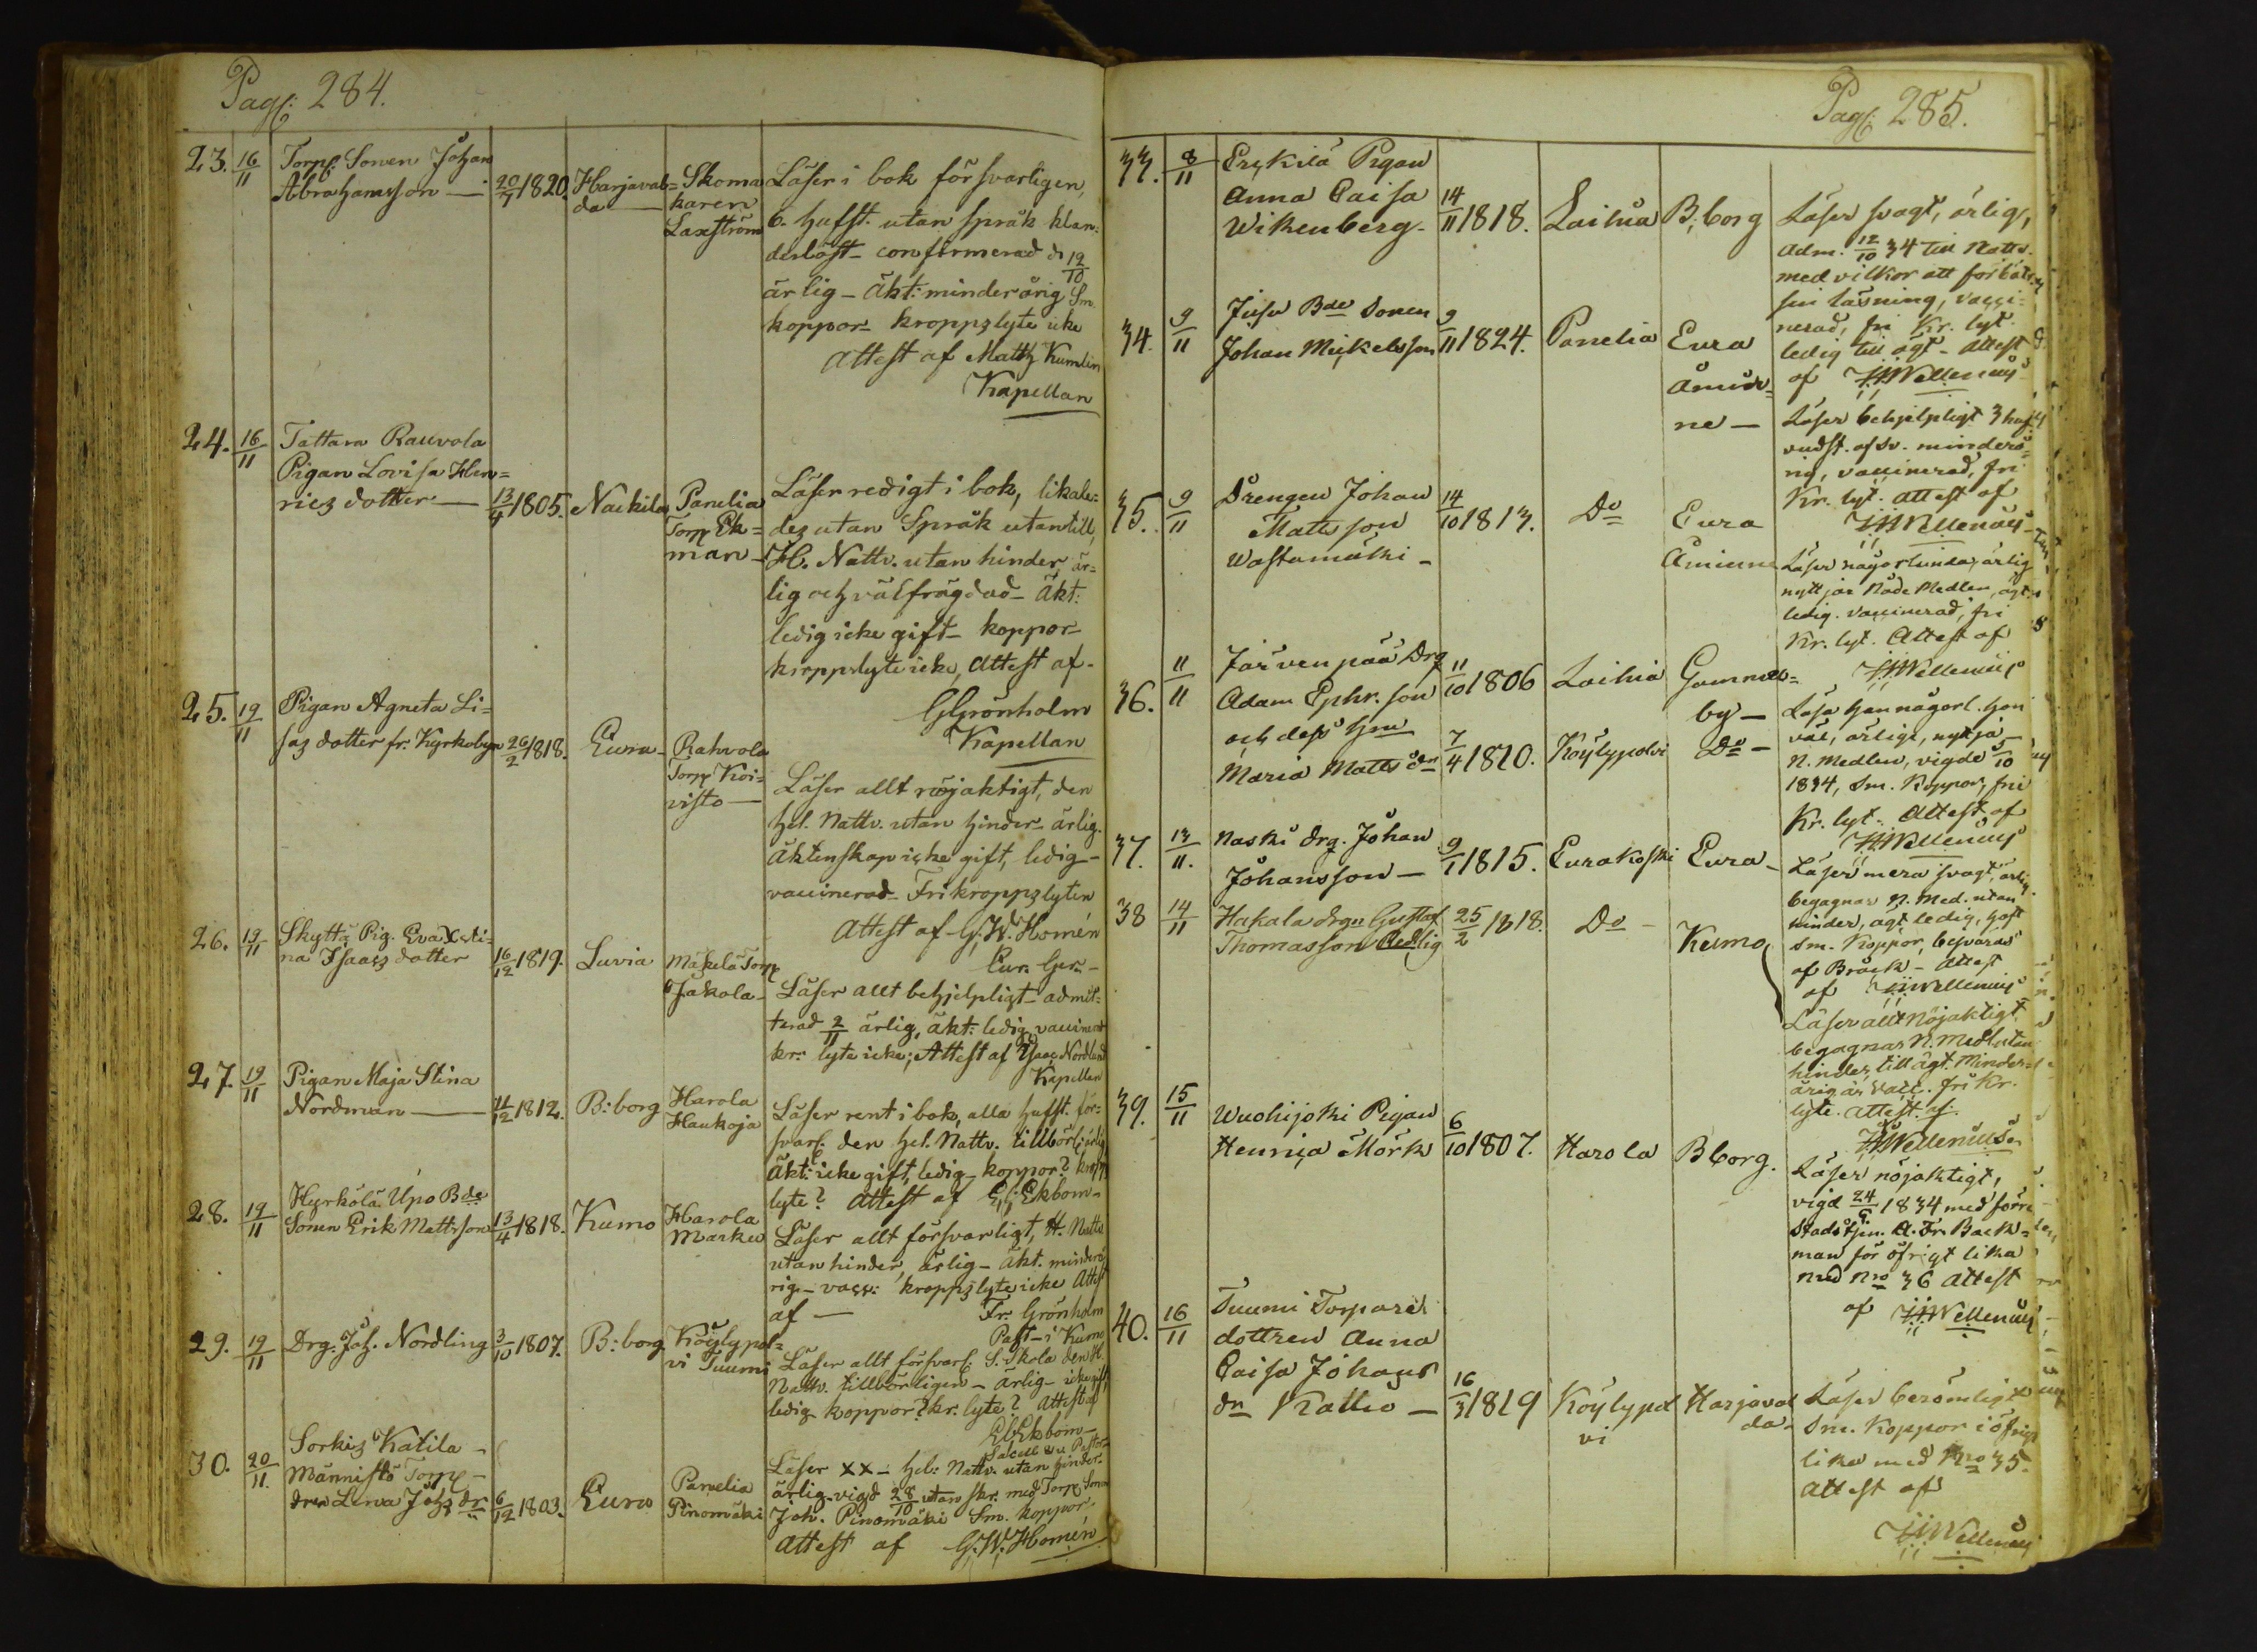 Pag: 284.
23. 16/11 Torp. Sonen Johan
Abrahamsson — 20/7 1820. Harjaval=
da — Skoma
karen
Laxström
Läser i bok försvarligen,
6. hufst. utan språk klan=
derlöst – confirmerad d 12/10
ärlig – Äkt: minderårig Sm.
koppor – kroppslyte icke
Attest af Matts Kumlin
Kapellan
24. 16/11 Tattara Rauvola
Pigan Lovisa Hen=
rics dotter — 13/4 1805. Nackila Panelia
Torp Ek=
man –
Läser redigt i bok, likale=
des utan Språk utantill,
H. Nattv. utan hinder, är=
lig och välfrägdad – Äkt:
ledig icke gift – koppor –
kroppslyte icke, Attest af –
G Grönholm
Kapellan
25. 19/11 Pigan Agneta Li=
sas dotter fr. Kyrkobyn 26/2 1818. Eura – Rahvola
Torp Koi=
visto —
Läser allt nöjaktigt, den
hel. Nattv. utan hinder – ärlig.
Äktenskap icke gift, ledig –
vaccinerad – Fri kroppslyten
Attest af G. W. Homén
Eur. Gr. –
26. 19/11 Skyttä Pig. Eva Xsti=
na Isaacs dotter 16/12 1819. Luvia Mäkelä Torp
Jakola –
Läser allt behjelpligt – admit=
terad 2/11 ärlig, äkt: ledig, vaccinerad
kr: lyte icke; Attest af Isaac Nordlund
Kapellan
27. 19/11 Pigan Maja Stina
Nordman — 11/12 1812. B:borg Harola
Haukoja
Läser rent i bok, alla hufst. för=
svarl. den hel. Nattv. tillbörl: ärlig
Äkt: icke gift, ledig – koppor? kropps
lyte? Attest af El: Ekbom –
28. 19/11 Hyrkölä Upo Bde
Sonen Erik Mattsson 13/4 1818. Kumo Harola
Marku
Läser allt försvarligt, H. Nattv
utan hinder, ärlig – äkt. minderå
rig – vacc: kroppslyte icke Attest
af — Fr. Grönholm
Past – i Kumo
29. 19/11 Drg. Joh. Nordling 3/10 1807. B:borg Köylypol=
vi Tuumi
Läser allt försvarl: S. Skola den H.
Nattv. tillbörligen – ärlig – icke gift
ledig koppor? kr. lyte? Attest af
El Ekbom –
30. 20/11. Sorkis Katila –
Männistö Torp –
drn Lena Johs dr 6/12 1803. Eura Panelia
Pinomäki
Läser xx – hel: Nattv. utan hinder.
ärlig – vigd 28/10 utan skr. med Torp. Sonen
Joh. Pinomäki Sm. koppor.
Attest af G. W. Homén
Pag: 285.
33. 8/11 Erkkilä Pigan
Anna Caisa
Wikenberg – 14/11 1818. Laihia B:borg
Läser svagt, ärlig,
adm. 12/10 34 till Nattv.
med vilkor att förbättra
sin läsning, vacci=
nerad, fri Kr. lyt.
ledig till ägt – Attest
af Wellenius
34. 9/11 Bde Sonen
Johan Mickelsson 9/11 1824. Panelia Eura
Åmin=
ne —
Läser behjelpligt 3 huf
vudst. minderå=
rig, vaccinerad, fri
Kr. lyt. attest af
Wellenius
35. 9/11 Drengen Johan
Mattsson
Wastamäki – 14/10 1813. Do Eura
Åminne
Läser någorlunda, ärlig
nyttjar Nåde Medlen, ägt.
ledig. vaccinerad, fri
Kr. lyt. Attest af
Wellenius
36. 11/11 Järvenpää Drg
Adam Ephr. son 11/10 1806 Laihia Gammel=
by —
och dess Hru
Maria Matts dr 7/4 1810. Köylypolvi Do –
Läsa han någorl. hon
väl, ärliga, nyttja
N. Medlen, vigde 5/10
1834, Sm. Koppor, fri
Kr. lyt. Attest af
Wellenius
37. 13/11. Naski drg. Johan
Johansson — 9/1 1815. Eurakoski Eura –
Läser mera svagt, ärlig
begagnar N. Med. utan
hinder, ägt ledig, haft
Sm. Koppor, besväras
af Bråck – Attest
af Wellenius
38 14/11 Hakala drgn Gustaf
Thomasson Redlig 25/2 1818. Do – Kumo
Läser allt nöjaktigt
begagnar N. Medl. utan
hinder, till ägt. Minder=
årig är Vacc. fri Kr.
lyte. Attest af
Wellenius
39. 15/11 Wuohijoki Pigan
Henrica Mörk 6/10 1807. Harola Bborg.
Läser nöjaktigt,
vigd 24/9 1834 med förre
Stadstjen. A. Fr. Back=
man för öfrigt lika
med Nro 36 Attest
af Wellenius
40. 16/11 Tuumi Torpare
dottren Anna
Caisa Johans
dr Kallio — 16/3 1819 Köylypol
vi Harjaval
da –
Läser berömligt
Sm. Koppor i öfrigt
lika med Nro 35.
Attest af
Wellenius